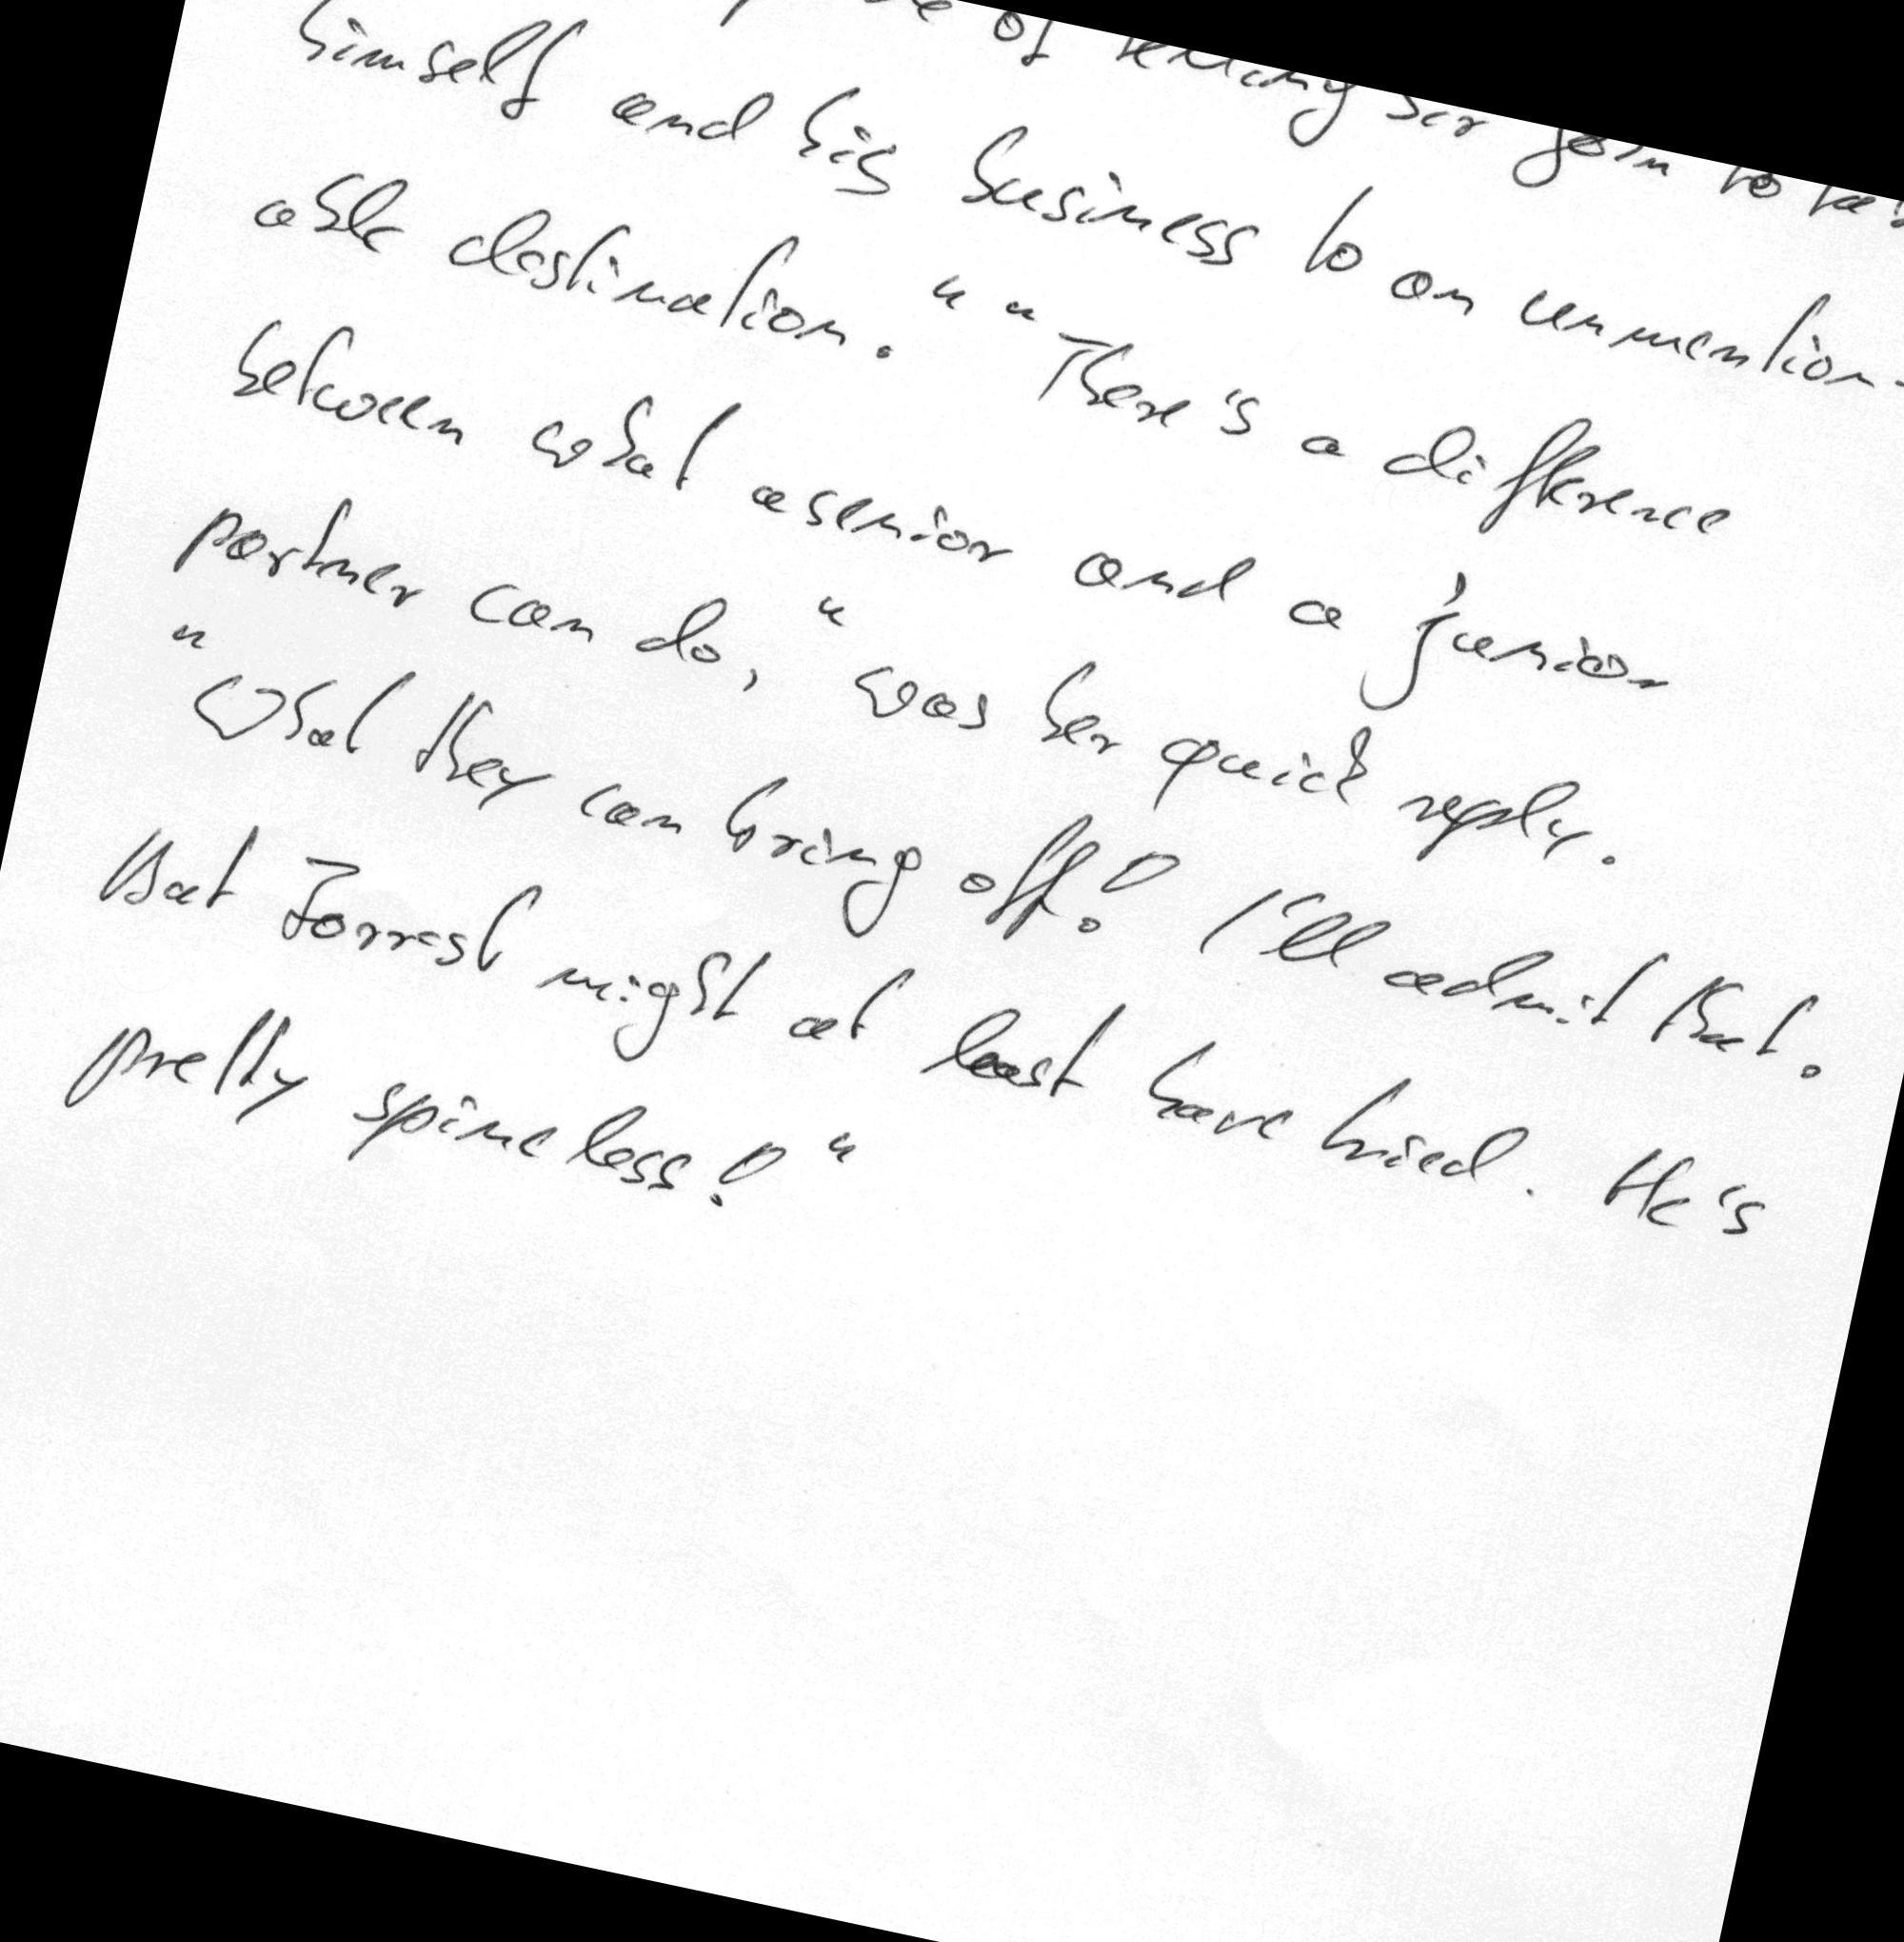 of telling Sir John to take
himself and his business to an unmention-
able destination." "There's a difference
between what a senior and a junior
partner can do," was her quick reply.
"What they can bring off? I'll admit that.
But Forrest might at least have tried. He's
pretty spineless!"